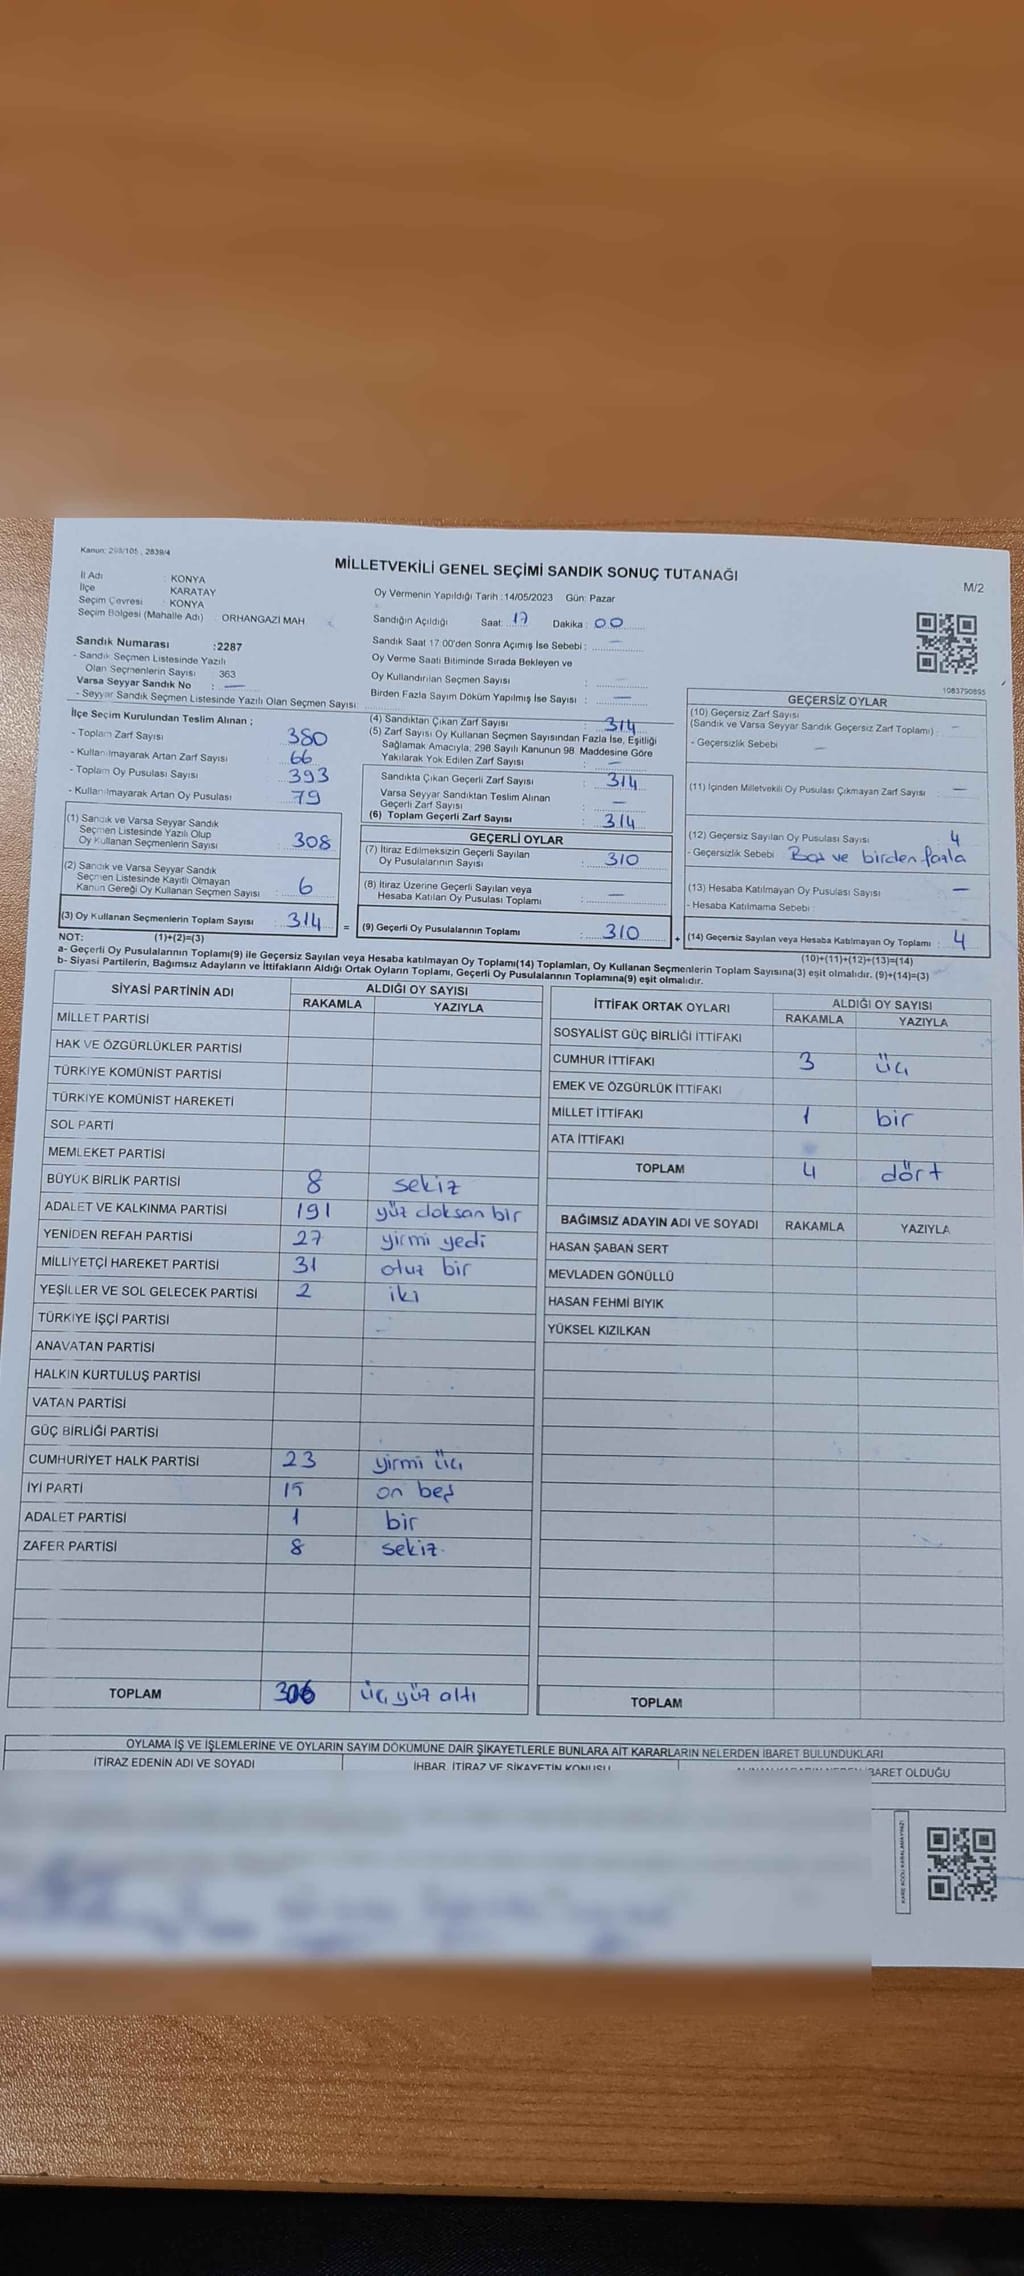 Kanun: 298/105 , 2839/4
MİLLETVEKİLİ GENEL SEÇİMİ SANDIK SONUÇ TUTANAĞI
M/2
İl Adı : KONYA
İlçe : KARATAY
Seçim Çevresi : KONYA
Seçim Bölgesi (Mahalle Adı) : ORHANGAZİ MAH
Oy Vermenin Yapıldığı Tarih :14/05/2023 Gün: Pazar
Sandığın Açıldığı Saat: 17 Dakika: 00
Sandık Saat 17:00'den Sonra Açımış İse Sebebi : —
Oy Verme Saati Bitiminde Sırada Bekleyen ve
Oy Kullandırılan Seçmen Sayısı : —
Birden Fazla Sayım Döküm Yapılmış İse Sayısı : —
1083790895
Sandık Numarası :2287
- Sandık Seçmen Listesinde Yazılı
Olan Seçmenlerin Sayısı 363
Varsa Seyyar Sandık No : —
- Seyyar Sandık Seçmen Listesinde Yazılı Olan Seçmen Sayısı:
İlçe Seçim Kurulundan Teslim Alınan ;
- Toplam Zarf Sayısı : 380
- Kullanılmayarak Artan Zarf Sayısı : 66
- Toplam Oy Pusulası Sayısı : 393
- Kullanılmayarak Artan Oy Pusulası : 79
(1) Sandık ve Varsa Seyyar Sandık
Seçmen Listesinde Yazılı Olup
Oy Kullanan Seçmenlerin Sayısı : 308
(2) Sandık ve Varsa Seyyar Sandık
Seçmen Listesinde Kayıtlı Olmayan
Kanun Gereği Oy Kullanan Seçmen Sayısı : 6
(3) Oy Kullanan Seçmenlerin Toplam Sayısı : 314
(1)+(2)=(3)
(4) Sandıktan Çıkan Zarf Sayısı : 314
(5) Zarf Sayısı Oy Kullanan Seçmen Sayısından Fazla İse, Eşitliği
Sağlamak Amacıyla; 298 Sayılı Kanunun 98. Maddesine Göre
Yakılarak Yok Edilen Zarf Sayısı : —
Sandıkta Çıkan Geçerli Zarf Sayısı : 314
Varsa Seyyar Sandıktan Teslim Alınan
Geçerli Zarf Sayısı : —
(6) Toplam Geçerli Zarf Sayısı : 314
GEÇERLİ OYLAR
(7) İtiraz Edilmeksizin Geçerli Sayılan
Oy Pusulalarının Sayısı : 310
(8) İtiraz Üzerine Geçerli Sayılan veya
Hesaba Katılan Oy Pusulası Toplamı : —
= (9) Geçerli Oy Pusulalarının Toplamı : 310
GEÇERSİZ OYLAR
(10) Geçersiz Zarf Sayısı
(Sandık ve Varsa Seyyar Sandık Geçersiz Zarf Toplamı) : —
- Geçersizlik Sebebi : —
(11) İçinden Milletvekili Oy Pusulası Çıkmayan Zarf Sayısı : —
(12) Geçersiz Sayılan Oy Pusulası Sayısı : 4
- Geçersizlik Sebebi : Boş ve birden fazla
(13) Hesaba Katılmayan Oy Pusulası Sayısı : —
- Hesaba Katılmama Sebebi :
+ (14) Geçersiz Sayılan veya Hesaba Katılmayan Oy Toplamı : 4
(10)+(11)+(12)+(13)=(14)
NOT:
a- Geçerli Oy Pusulalarının Toplamı(9) ile Geçersiz Sayılan veya Hesaba katılmayan Oy Toplamı(14) Toplamları, Oy Kullanan Seçmenlerin Toplam Sayısına(3) eşit olmalıdır. (9)+(14)=(3)
b- Siyasi Partilerin, Bağımsız Adayların ve İttifakların Aldığı Ortak Oyların Toplamı, Geçerli Oy Pusulalarının Toplamına(9) eşit olmalıdır.
SİYASİ PARTİNİN ADI ALDIĞI OY SAYISI
RAKAMLA YAZIYLA
MİLLET PARTİSİ
HAK VE ÖZGÜRLÜKLER PARTİSİ
TÜRKİYE KOMÜNİST PARTİSİ
TÜRKİYE KOMÜNİST HAREKETİ
SOL PARTİ
MEMLEKET PARTİSİ
BÜYÜK BİRLİK PARTİSİ 8 sekiz
ADALET VE KALKINMA PARTİSİ 191 yüz doksan bir
YENİDEN REFAH PARTİSİ 27 yirmi yedi
MİLLİYETÇİ HAREKET PARTİSİ 31 otuz bir
YEŞİLLER VE SOL GELECEK PARTİSİ 2 iki
TÜRKİYE İŞÇİ PARTİSİ
ANAVATAN PARTİSİ
HALKIN KURTULUŞ PARTİSİ
VATAN PARTİSİ
GÜÇ BİRLİĞİ PARTİSİ
CUMHURİYET HALK PARTİSİ 23 yirmi üç
İYİ PARTİ 15 on beş
ADALET PARTİSİ 1 bir
ZAFER PARTİSİ 8 sekiz
TOPLAM 306 üç yüz altı
İTTİFAK ORTAK OYLARI ALDIĞI OY SAYISI
RAKAMLA YAZIYLA
SOSYALİST GÜÇ BİRLİĞİ İTTİFAKI
CUMHUR İTTİFAKI 3 üç
EMEK VE ÖZGÜRLÜK İTTİFAKI
MİLLET İTTİFAKI 1 bir
ATA İTTİFAKI
TOPLAM 4 dört
BAĞIMSIZ ADAYIN ADI VE SOYADI RAKAMLA YAZIYLA
HASAN ŞABAN SERT
MEVLADEN GÖNÜLLÜ
HASAN FEHMİ BIYIK
YÜKSEL KIZILKAN
TOPLAM
OYLAMA İŞ VE İŞLEMLERİNE VE OYLARIN SAYIM DÖKÜMÜNE DAİR ŞİKAYETLERLE BUNLARA AİT KARARLARIN NELERDEN İBARET BULUNDUKLARI
İTİRAZ EDENİN ADI VE SOYADI İHBAR, İTİRAZ VE ŞİKAYETİN KONUSU BARET OLDUĞU
KARE KODU KARALAMAYINIZ!